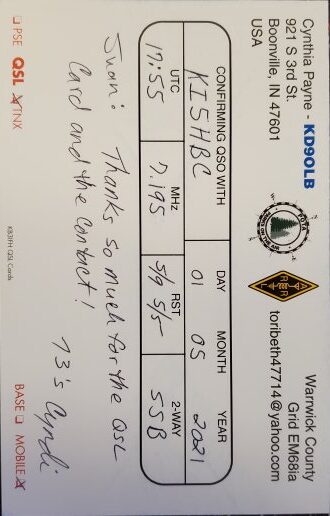 Cynthia Payne - KD9OLB
921 S 3rd St.
Boonville, IN 47601
USA
POTA
ARRL
Warrwick County
Grid EM68ia
toribeth47714@yahoo.com
CONFIRMING QSO WITH DAY MONTH YEAR
KI5HBC 01 05 2021
UTC MHz RST 2-WAY
17:55 7.195 5/9 5/5 SSB
Juan: Thanks so much for the QSL
Card and the contact!
73's Cyndi
PSE QSL TNX
KB3IFH QSL Cards
BASE MOBILE